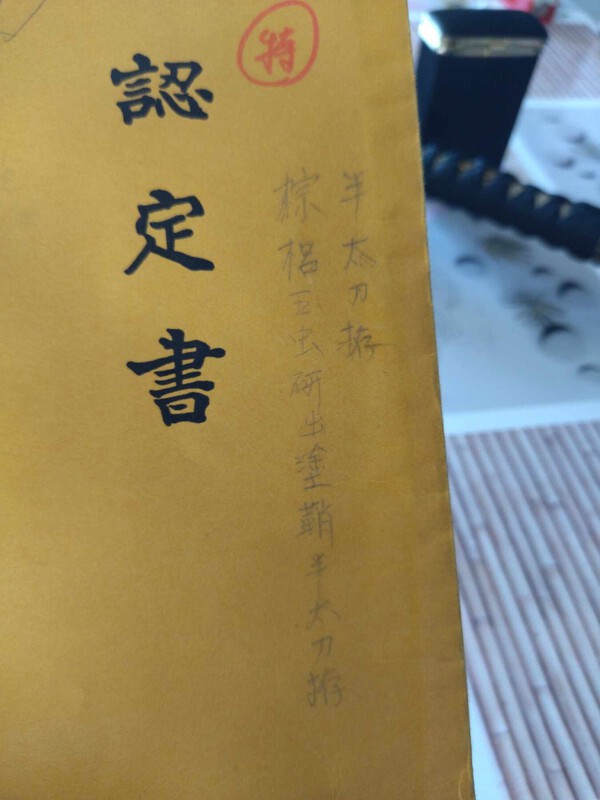 半太刀拵
棕梠玉虫研出塗鞘半太刀拵
特
認定書